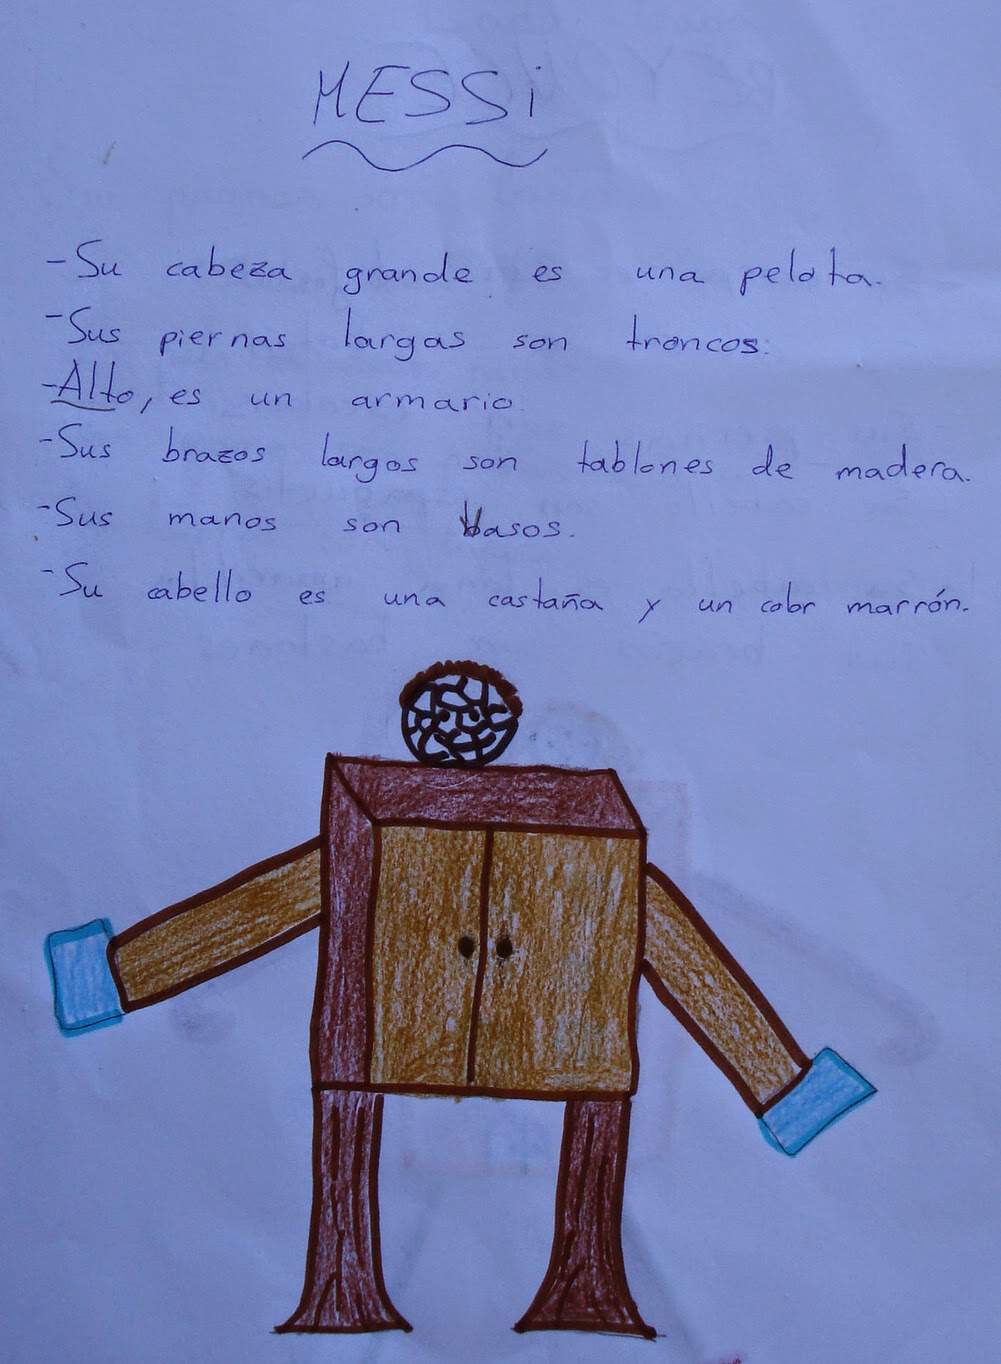 MESSi
-Su cabeza grande es una pelota.
-Sus piernas largas son troncos.
-Alto, es un armario.
-Sus brazos largos son tablones de madera.
-Sus manos son vasos.
-Su cabello es una castaña y un color marrón.